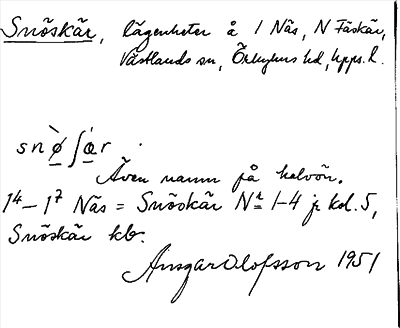 Snöskär, lägenheter å 1 Näs, N Fäskär,
Västlands sn, Örbyhus hd, Upps. l.
snø̀ʃα̇r
Även namn på halvön.
1⁴–1⁷ Näs = Snöskär Nr 1–4 jr kol. 5,
Snöskär kb.
Ansgar Olofsson 1951